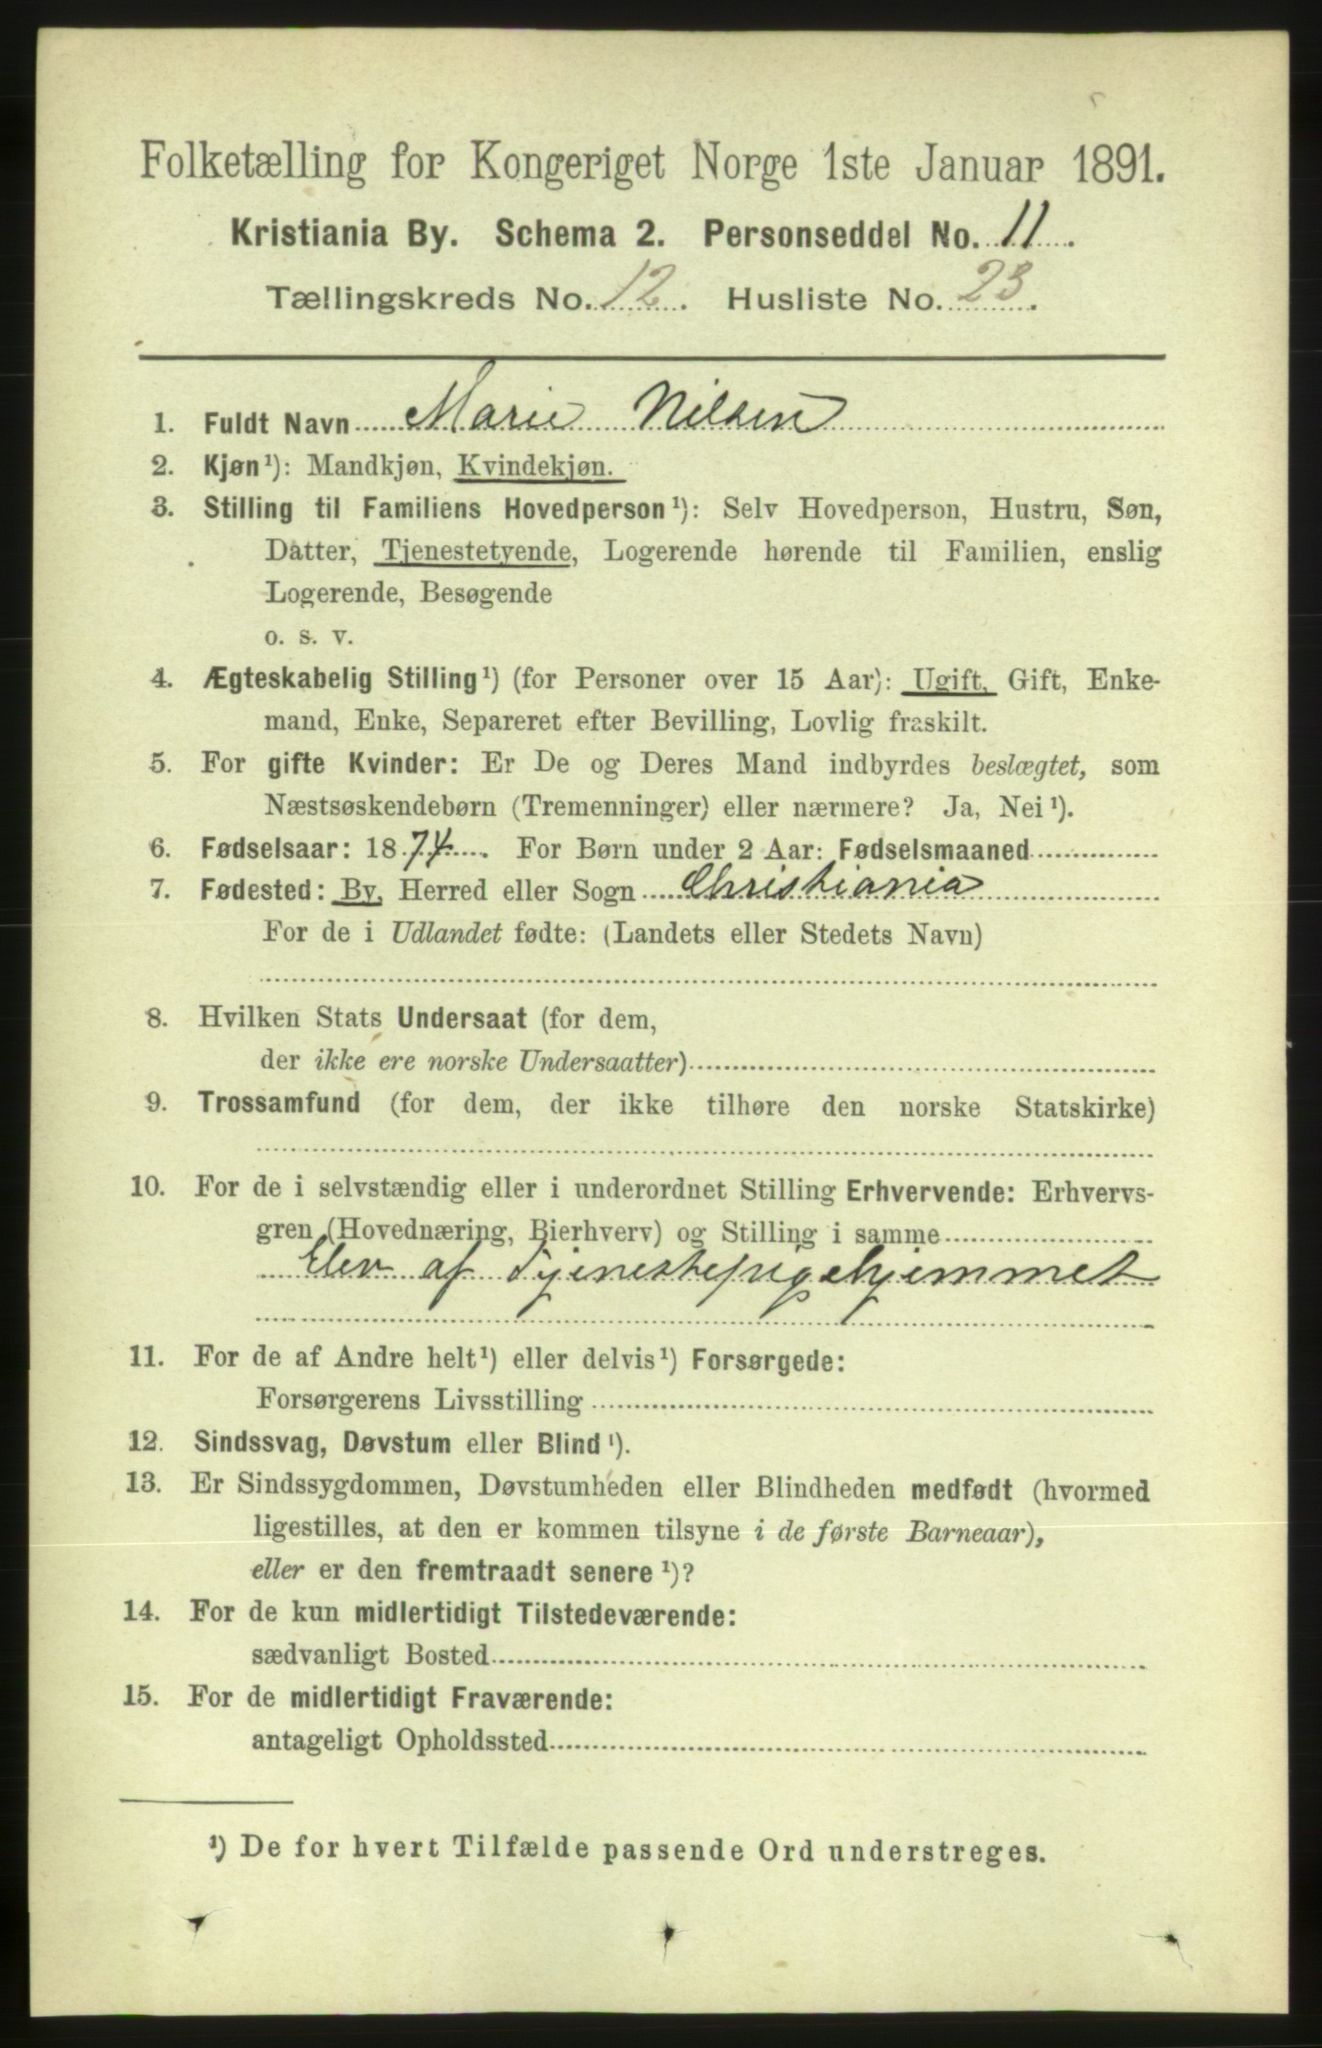 Folketælling for Kongeriget Norge 1ste Januar 1891.
Kristiania By. Schema 2. Personseddel No. 11.
Tællingskreds No. 12. Husliste No. 23.
1. Fuldt Navn Marie Nilsen
2. Kjøn¹): Mandkjøn, Kvindekjøn.
3. Stilling til Familiens Hovedperson¹): Selv Hovedperson, Hustru, Søn,
Datter, Tjenestetyende, Logerende hørende til Familien, enslig
Logerende, Besøgende
o. s. v.
4. Ægteskabelig Stilling¹) (for Personer over 15 Aar): Ugift, Gift, Enke-
mand, Enke, Separeret efter Bevilling, Lovlig fraskilt.
5. For gifte Kvinder: Er De og Deres Mand indbyrdes beslægtet, som
Næstsøskendebørn (Tremenninger) eller nærmere? Ja, Nei¹).
6. Fødselsaar: 1874. For Børn under 2 Aar: Fødselsmaaned
7. Fødested: By, Herred eller Sogn Christiania
For de i Udlandet fødte: (Landets eller Stedets Navn)
8. Hvilken Stats Undersaat (for dem,
der ikke ere norske Undersaatter)
9. Trossamfund (for dem, der ikke tilhøre den norske Statskirke)
10. For de i selvstændig eller i underordnet Stilling Erhvervende: Erhvervs-
gren (Hovednæring, Bierhverv) og Stilling i samme
Elev af Tjenestepigehjemmet
11. For de af Andre helt¹) eller delvis¹) Forsørgede:
Forsørgerens Livsstilling
12. Sindssvag, Døvstum eller Blind¹).
13. Er Sindssygdommen, Døvstumheden eller Blindheden medfødt (hvormed
ligestilles, at den er kommen tilsyne i de første Barneaar),
eller er den fremtraadt senere¹)?
14. For de kun midlertidigt Tilstedeværende:
sædvanligt Bosted
15. For de midlertidigt Fraværende:
antageligt Opholdssted
¹) De for hvert Tilfælde passende Ord understreges.